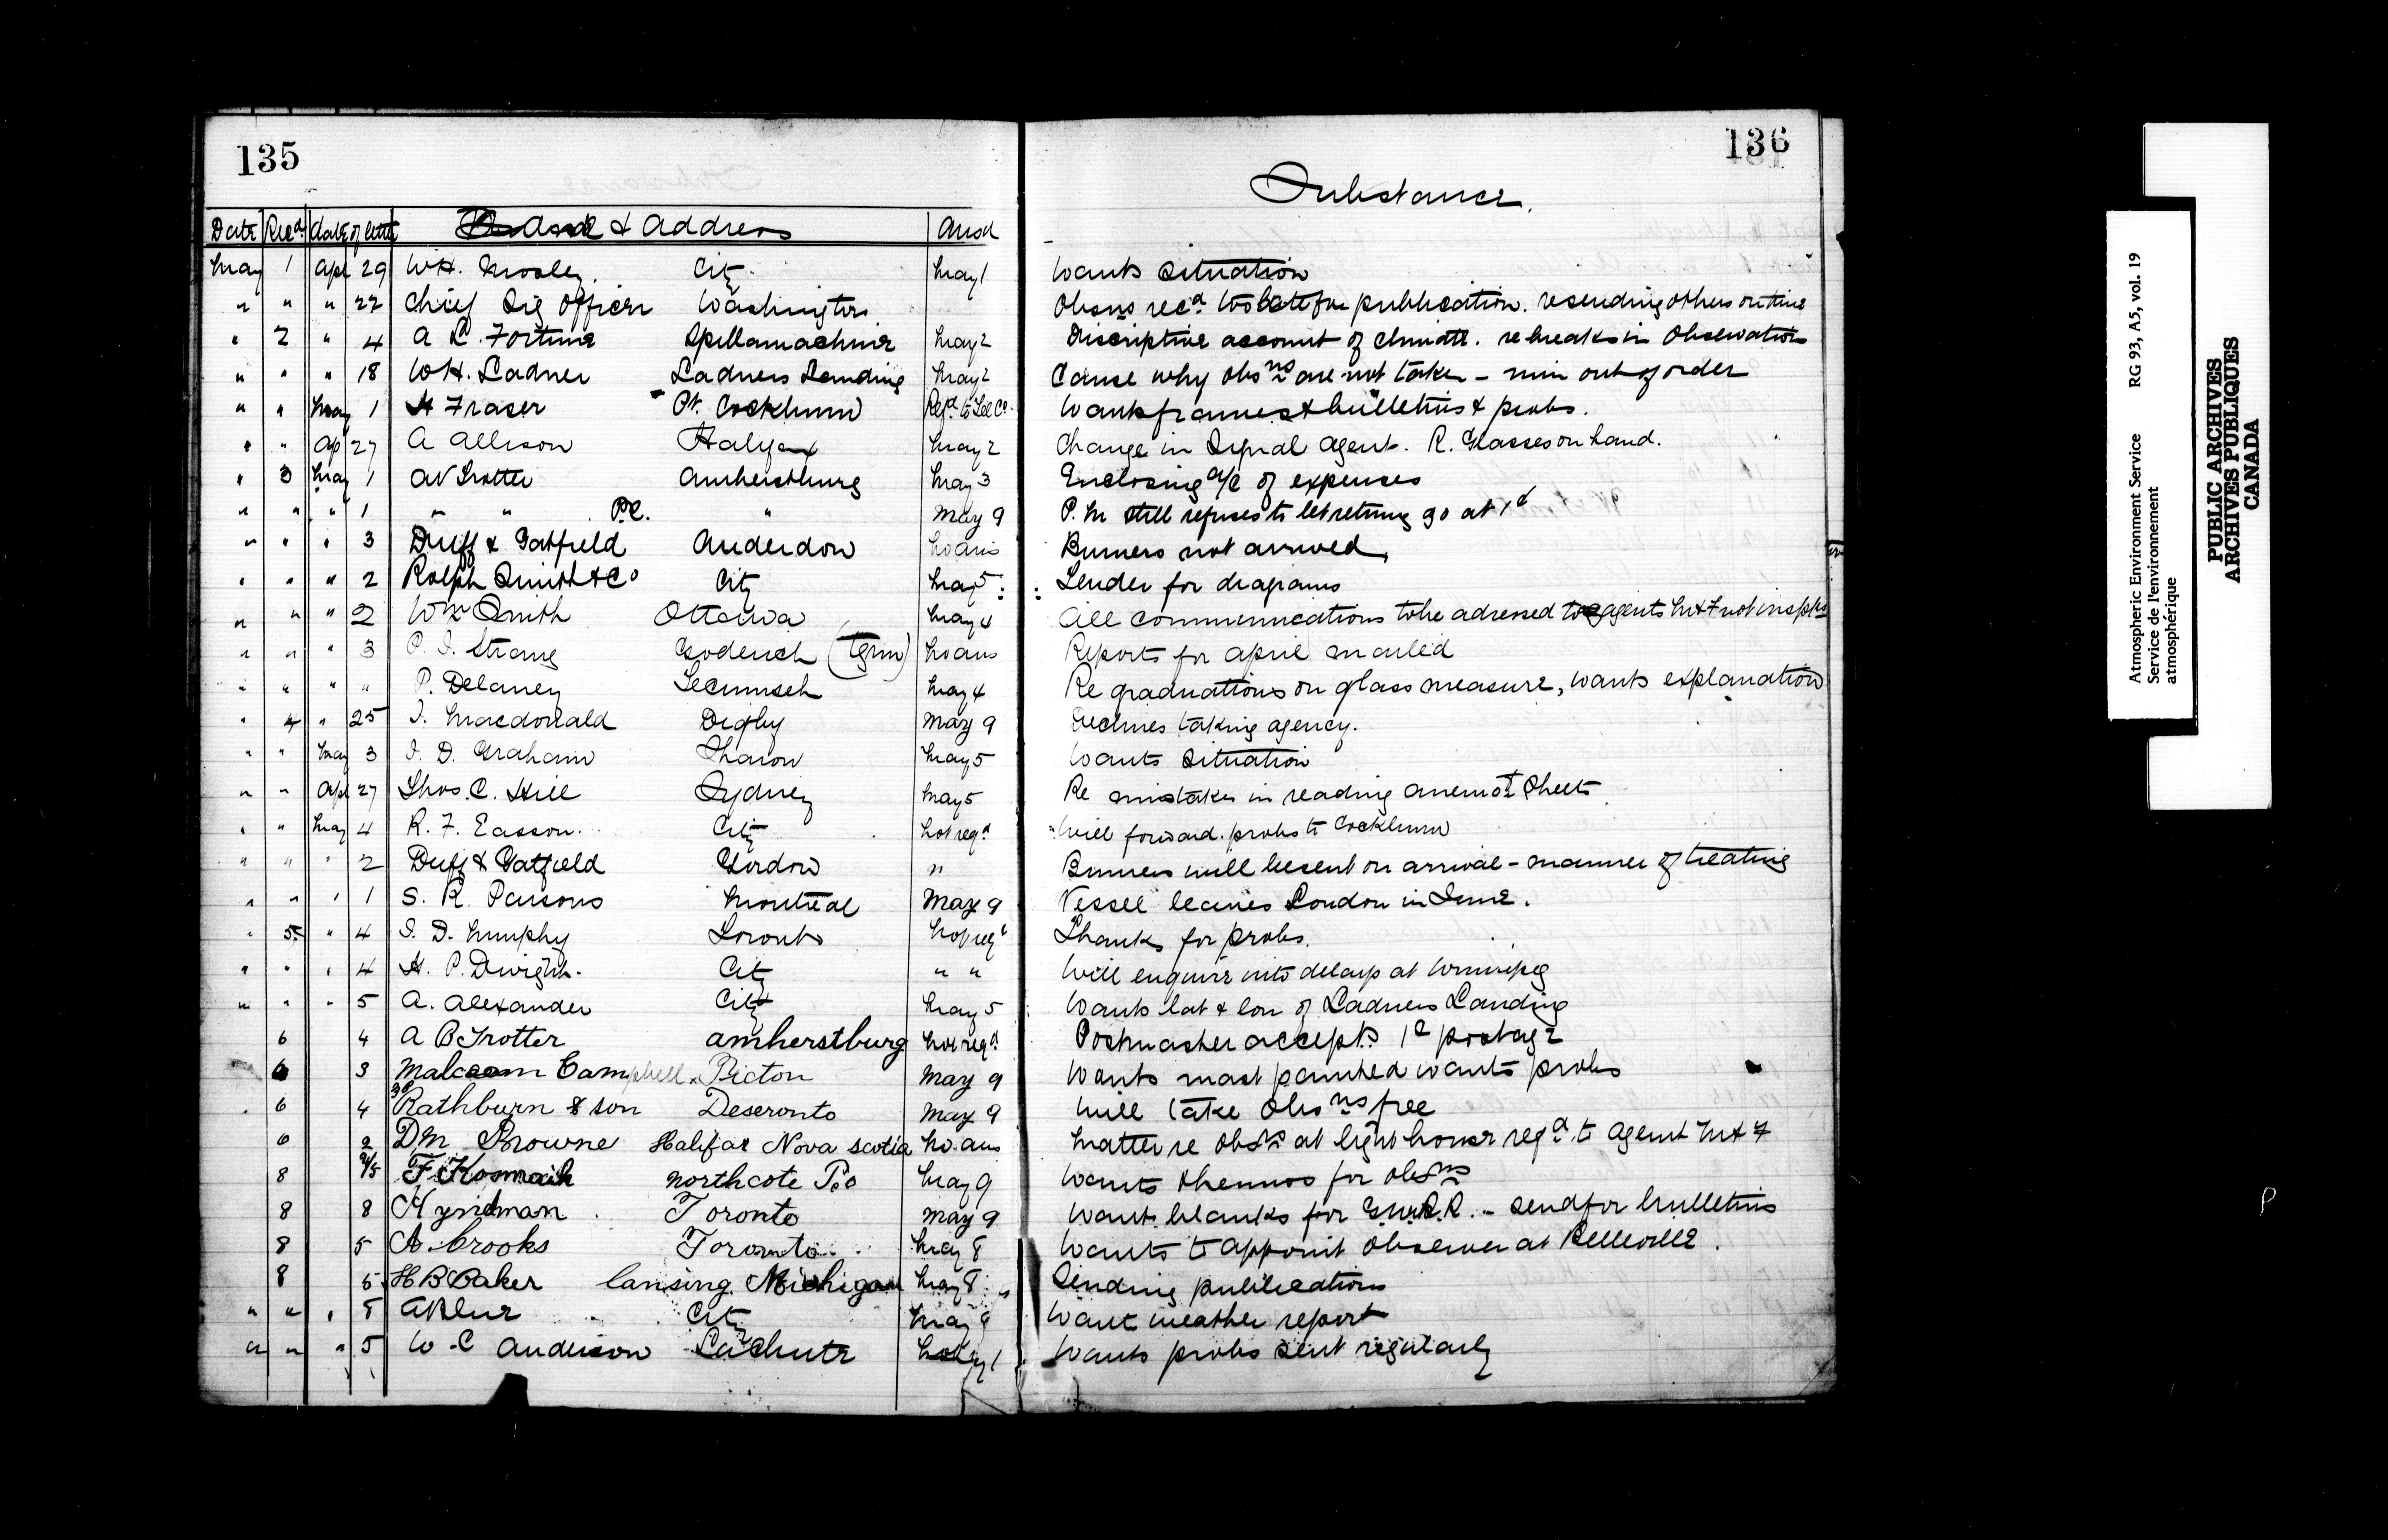 135
136
Substance
Date Recd date of letter & Address Ansd
May 1 Apl 29 W.H. City May 1 Wants situation
" " " 27 Chief Sig Officer Washington Obsns recd too late for publication. re sending others on time
" 2 " 4 A L. Fortune Spillamacheene May 2 Discriptive account of climate. re breaks in Observations
" " " 18 W.H. Ladner Ladners Landing May 2 Cause why obsns are not taken - min out of order
" " May 1 H Fraser Pt. Cockburn Refd to Tel Co. Wants frames & bulletins & probs.
" " Ap 27 A Allison Halifax May 2 Change in Signal Agent. R. Glasses on hand.
" 3 May 1 Trotter Amherstburg May 3 Enclosing a/c of expenses
" " " 1 " " P.C. " May 9 P.M still refuses to let returns go at 1c
" " " 3 Duff & Gatfield Anderdon No ans Burners not arrived
" " " 2 Ralph Smith & Co City May 5 Tender for diagrams
" " " 2 Wm Smith Ottawa May 4 All communications to be adressed to agents M & F not
" " " 3 P. I. Strang Goderich (Tgrm) No ans Reports for April mailed
" " " " P. Delaney Tecumseh May 4 Re graduations on glass measure, wants explanation
" 4 " 25 J. Macdonald Digby May 9 Declines taking agency.
" " May 3 J. D. Graham Sharon May 5 Wants situation
" " Apl 27 Thos. C. Hill Sydney May 5 Re mistakes in reading anemot Sheets
" " May 4 R. F. Easson. City Not reqd Will forward probs to Cockburn
" " " 2 Duff & Gatfield Gordon " Burners will be sent on arrival - manner of treating
" " " 1 S. R. Parsons Montreal May 9 Vessel leaves London in June.
" 5 " 4 J. D. Murphy Toronto Not reqd Thanks for probs.
" " " 4 H. P. Dwight. City " " Will enquire into delays at Winnipeg
" " " 5 A. Alexander City May 5 Wants lat & lon of Ladners Landing
6 4 A B Trotter Amherstburg Not reqd Postmaster accepts 1c postage
6 3 Malcom Campbell Picton May 9 Wants mast painted wants probs
" 6 4 Rathburn & son Deseronto May 9 Will take Obsns free
6 2 D M Browne Halifax Nova scotia No ans Matter re Obsns at light house to Agent M & F
8 F northcote P.O May 9 Wants thermos for obsns
8 8 Hyndman Toronto May 9 Want blanks for - send for bulletins
8 5 A. brooks Toronto May 8 Wants to appoint Observer at Belleville.
8 5 H B Baker lansing Michigan May 8 Sending publications
" " " 8 City May 9 Want weather report
" " " 5 W. C Anderson Lachute Wants probs sent regularly
Atmospheric Environment Service RG 93, A5, vol. 19
Service de l'environnement
atmosphérique
PUBLIC ARCHIVES
ARCHIVES PUBLIQUES
CANADA